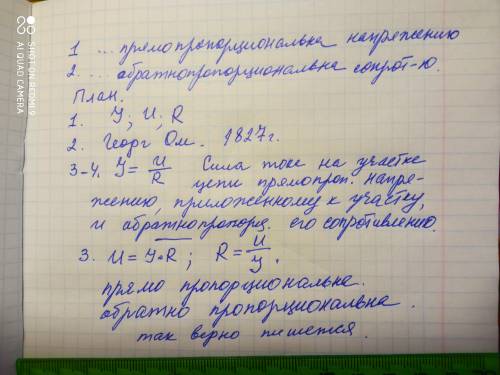 1 ... прямопропорциональна напряжению
2. ... обратнопропорциональна сопрот-ю.
План.
1. У; U; R
2. Георг Ом. 1827г.
3-4. У = U/R Сила тока на участке
цепи прямопроп. напря-
жению, приложенному к участку,
и обратнопропорц. его сопротивлению.
3. U = У•R; R = U/У.
прямо пропорциональна.
обратно пропорциональна.
так верно пишется.
SHOT ON REDMI 9
AI QUAD CAMERA